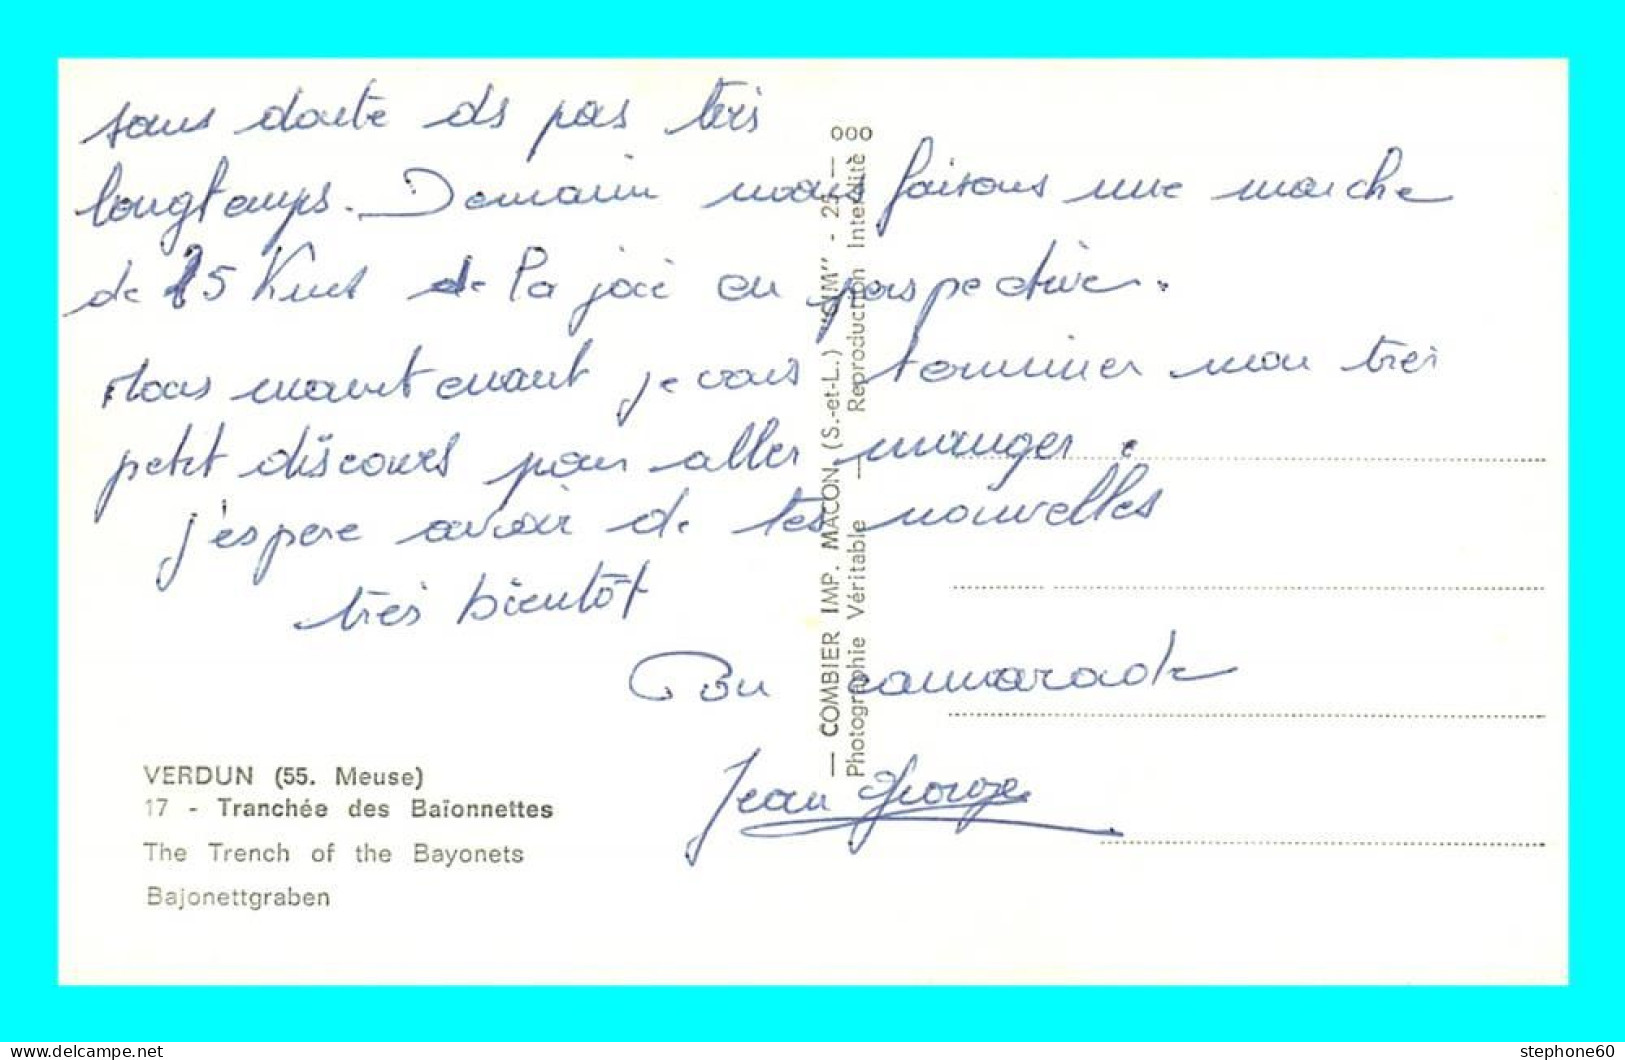 sans doute ds pas très
longtemps. Demain nous faisons une marche
de 25 Kms de la joie en perspective.
Mais maintenant je vais terminer mon très
petit discours pour aller manger.
j'espère avoir de tes nouvelles
très bientôt
Ton camarade
Jean George
VERDUN (55. Meuse)
17 - Tranchée des Baïonnettes
The Trench of the Bayonets
Bajonettgraben
— COMBIER IMP. MACON (S.-et-L.) "CIM" - 25 —
Photographie Véritable — Reproduction Interdite
000
Delcampe.net
stephone60